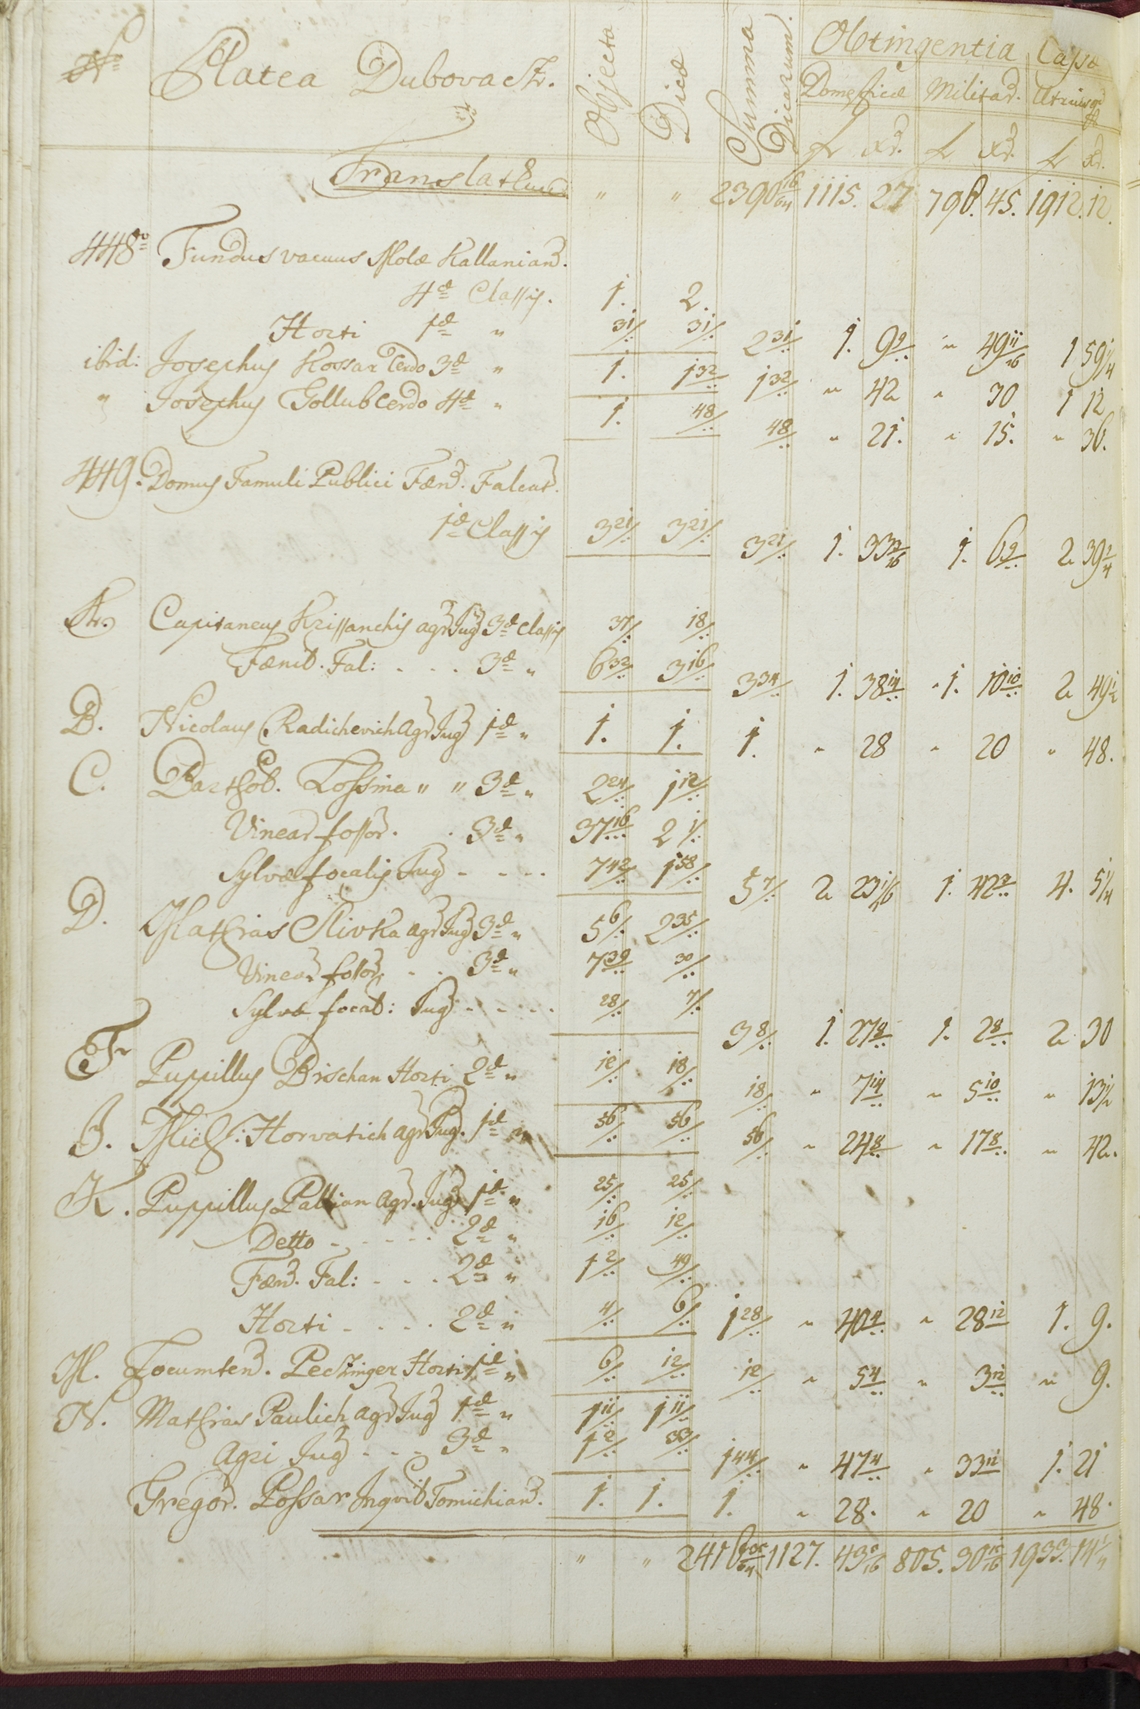 Nº Platea Dubovacz. Objecta Dicæ Summa Dicarum. Obtingentia Cassæ
Domesticæ Militar. Utriusq
f xr. f xr. f xr.
Translatum " " 2390 16/64 1115. 27 796. 45. 1912. 12.
448 Fundus vacuus Molæ Kallanian.
4æ Classis. 1. 2.
Horti 1æ " 31/ 31/ 2 31/ 1. 9 9/ " 49 11/16 1 59 1/4
ibid: Josephus Kossar Cerdo 3æ " 1. 1 32/ 1 32/ " 42 " 30 1 12
" Josephus Gollub Cerdo 4æ " 1. 48/ 48/ " 21. " 15. " 36.
449. Domus Famuli Publici Fæn. Falcat.
1æ Classis 3 21/ 3 21/ 3 21/ 1. 33 /16 1. 6 9/ 2 39 2/4
A. Capitaneus Krissanchis agr Jug 3æ Classis 37/ 18/
Fænit. Fal: . . . 3æ " 6 32/ 3 16/ 3 34/ 1. 38 14/ " 1. 10 10/ 2 49 1/2
B. Nicolaus Radichevich Agr Jug 1æ " 1. 1. 1. " 28 " 20 " 48.
C. Barthol. Lossina " " 3æ " 2 24/ 1 12/
Vinear fossor. . 3æ " 37 16/ 2 1/
Sylvæ focalis Jug - - - - 7 42/ 1 58/ 5 7/ 2 23 1/16 1. 42 3/ 4. 5 1/4
D. Mathias Slivka agr Jug 3æ " 5 6/ 2 35/
Vinear fossor . . 3æ " 7 39/ 30/
Sylvæ focal: Jug - - - - 28/ 7/ 3 8/ 1. 27 8/ 1. 2 8/ 2 30
F Pupillus Brischan Horti 2æ " 12/ 18/ 18/ " 7 14/ " 5 10/ " 13 1/2
J. Mich: Horvatich agr Jug. 1æ " 56/ 56/ 56/ " 24 8/ " 17 8/ " 42.
K. Pupillus Pattian Agr. Jug 1æ " 25/ 25/
Detto - - - - 2æ " 16/ 12/
Fæn. Fal: - - . 2æ " 1 2/ 49/
Horti - . . . 2æ " 4/ 6/ 1 28/ " 40 4/ " 28 12/ 1. 9.
M. Locumten. Pechinger Horti 1æ " 6/ 12/ 12/ " 5 4/ " 3 12/ " 9.
N. Mathias Paulich agr Jug 1æ " 1 11/ 1 11/
Agri Jug - - - 3æ " 1 2/ 33/ 1 44/ " 47 4/ " 33 12/ 1. 21
Gregor. Possar Inquil Tomichian. 1. 1. 1. " 28. " 20 " 48.
" " 2416 /64 1127. 43 /16 805. 30 /16 1933. 14